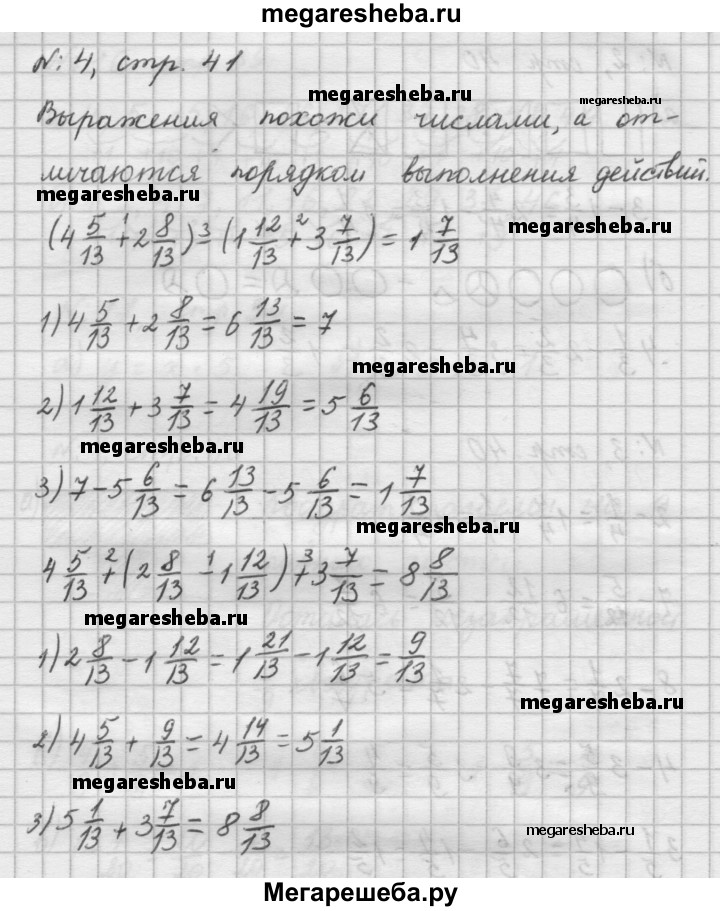 megaresheba.ru
№: 4, стр. 41
megaresheba.ru
Выражения похожи числами, а от-
megaresheba.ru
личаются порядком выполнения действий.
megaresheba.ru
(4 5/13 +¹ 2 8/13) -³ (1 12/13 +² 3 7/13) = 1 7/13
megaresheba.ru
1) 4 5/13 + 2 8/13 = 6 13/13 = 7
megaresheba.ru
2) 1 12/13 + 3 7/13 = 4 19/13 = 5 6/13
megaresheba.ru
3) 7 - 5 6/13 = 6 13/13 - 5 6/13 = 1 7/13
megaresheba.ru
4 5/13 +² (2 8/13 -¹ 1 12/13) +³ 3 7/13 = 8 8/13
megaresheba.ru
1) 2 8/13 - 1 12/13 = 1 21/13 - 1 12/13 = 9/13
megaresheba.ru
2) 4 5/13 + 9/13 = 4 14/13 = 5 1/13
megaresheba.ru
3) 5 1/13 + 3 7/13 = 8 8/13
megaresheba.ru
Мегарешеба.ру